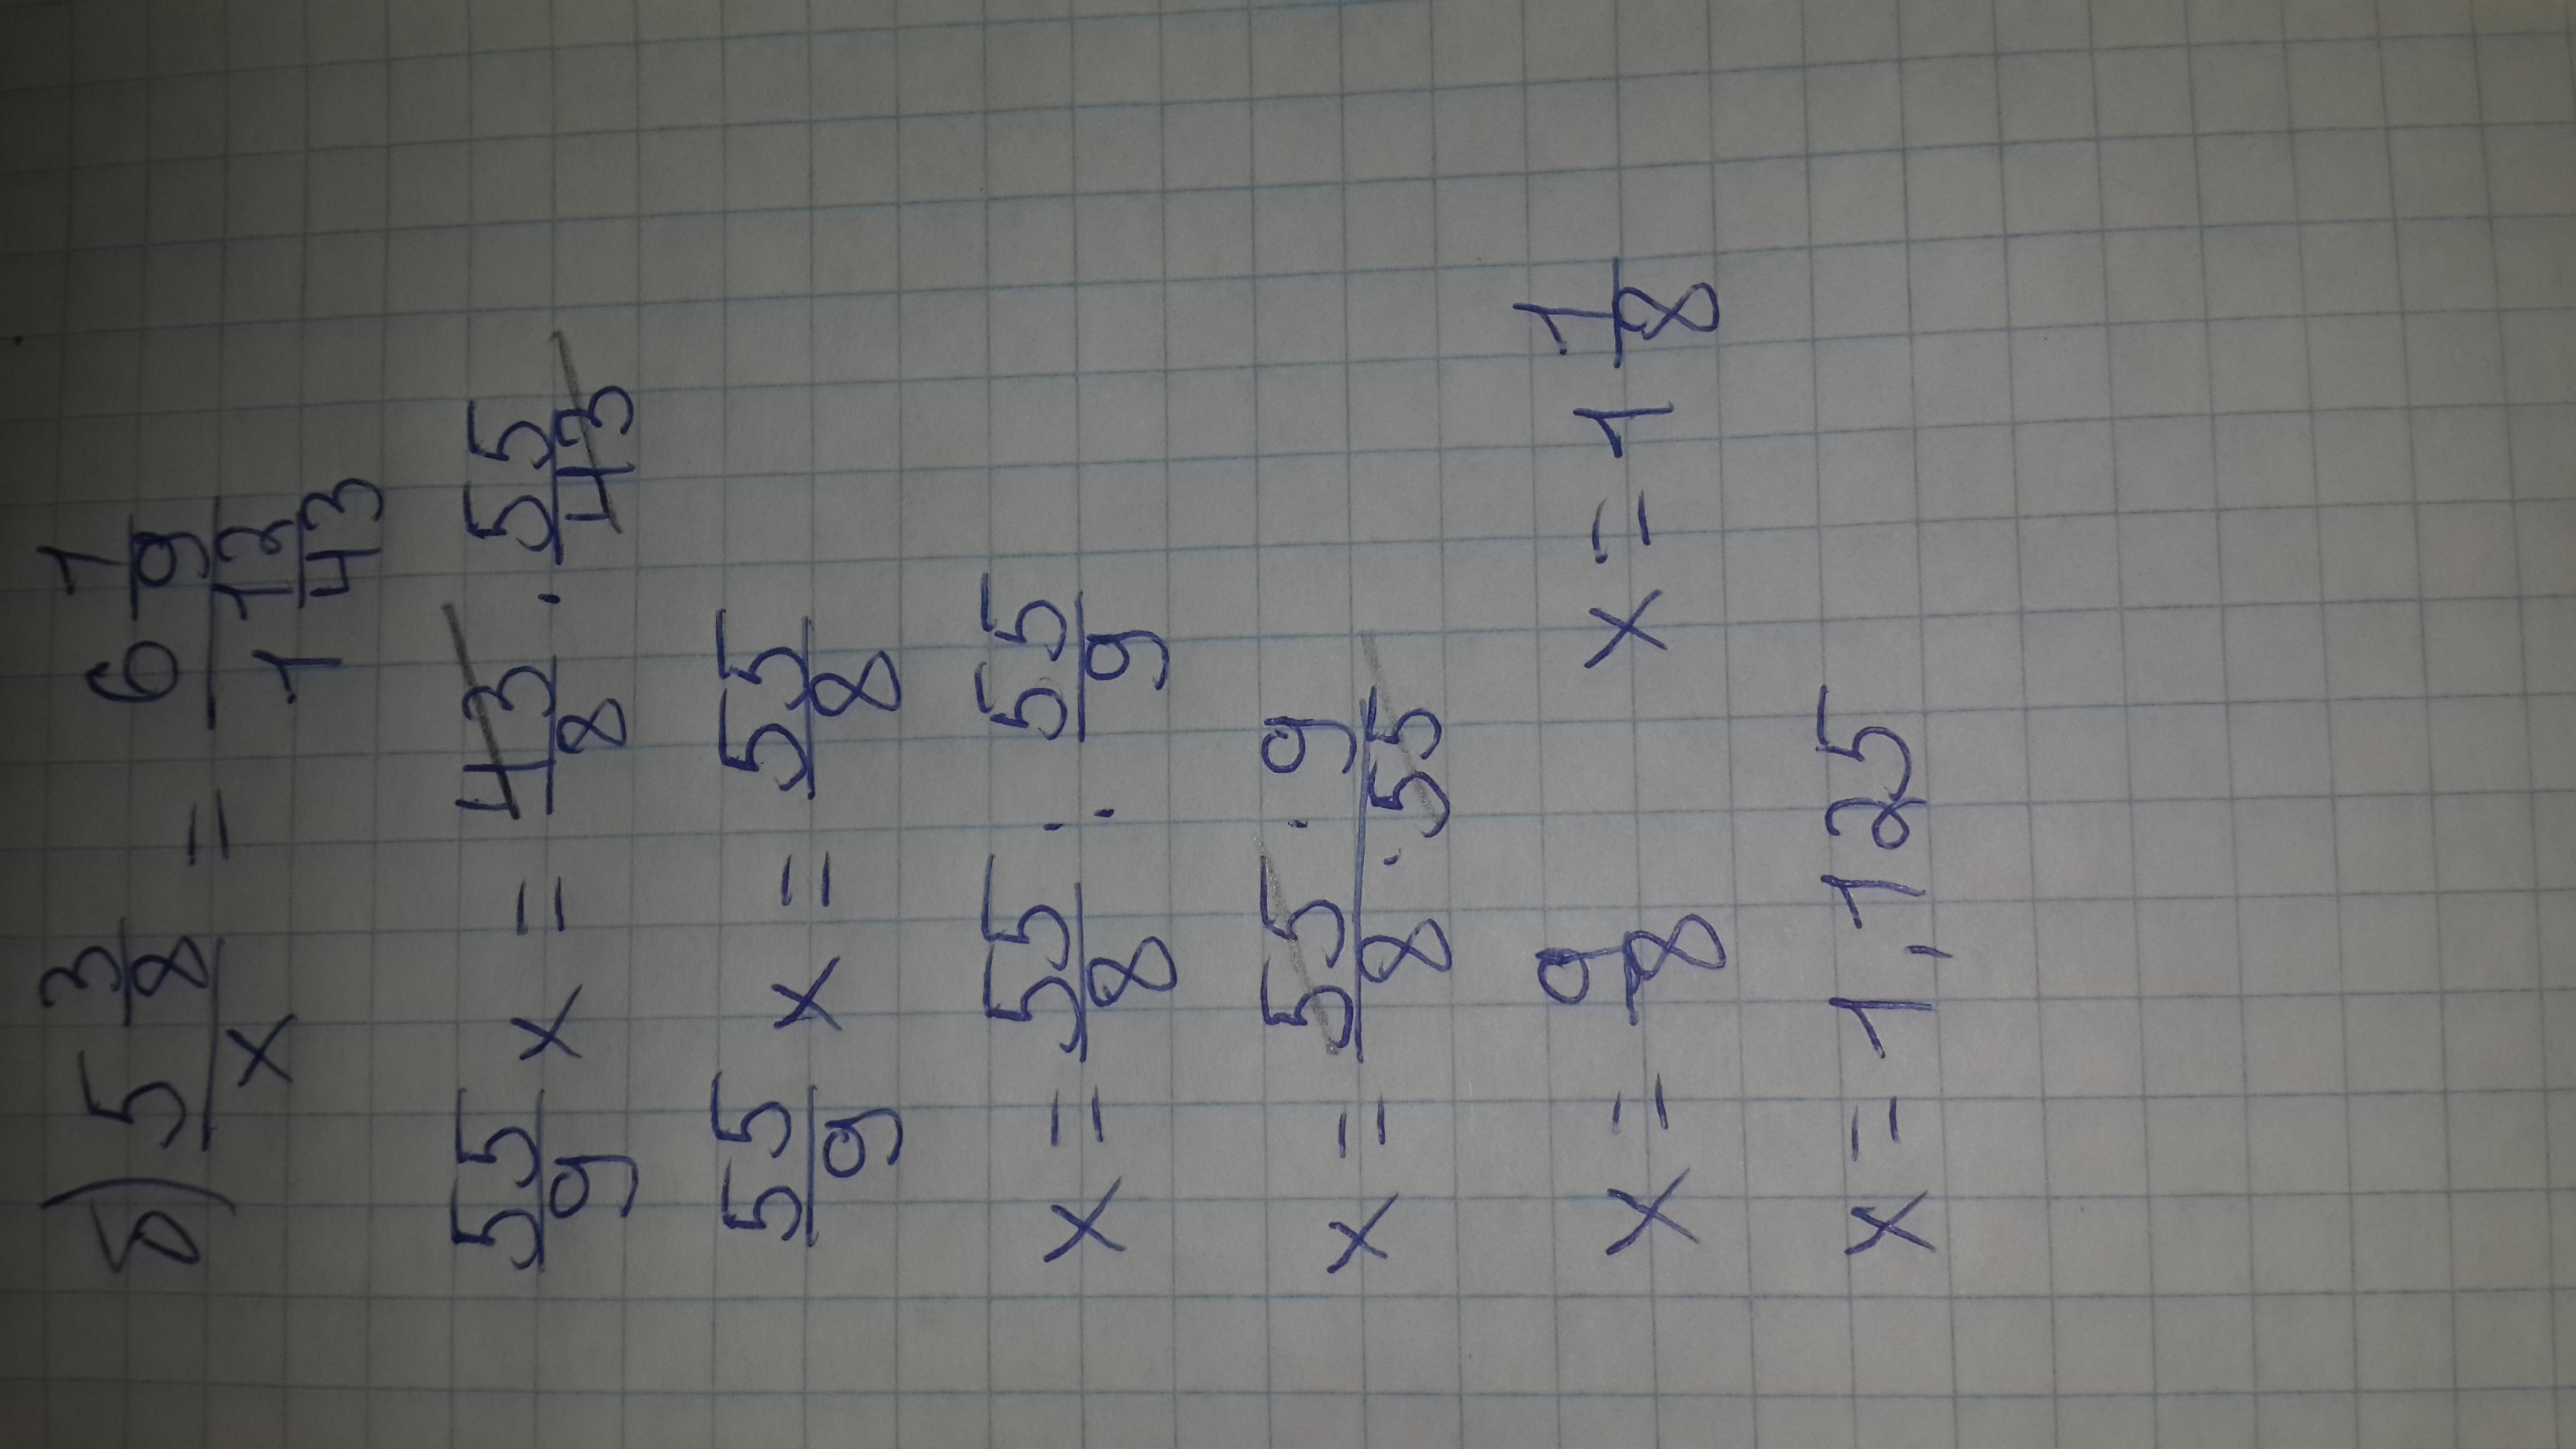 б) 5 3/8 / x = 6 1/9 / 1 12/43
55/9 x = 43/8 · 55/43
55/9 x = 55/8
x = 55/8 : 55/9
x = 55 · 9 / 8 · 55
x = 9/8 x = 1 1/8
x = 1,125